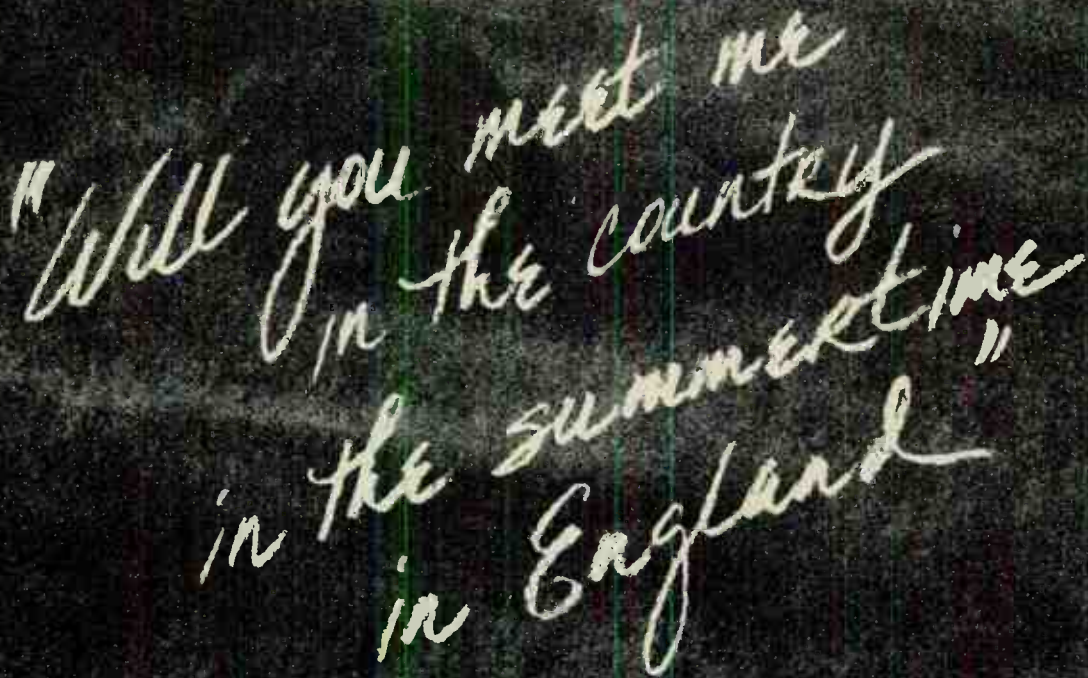 "Will you meet me
in the country
in the summertime
in England"